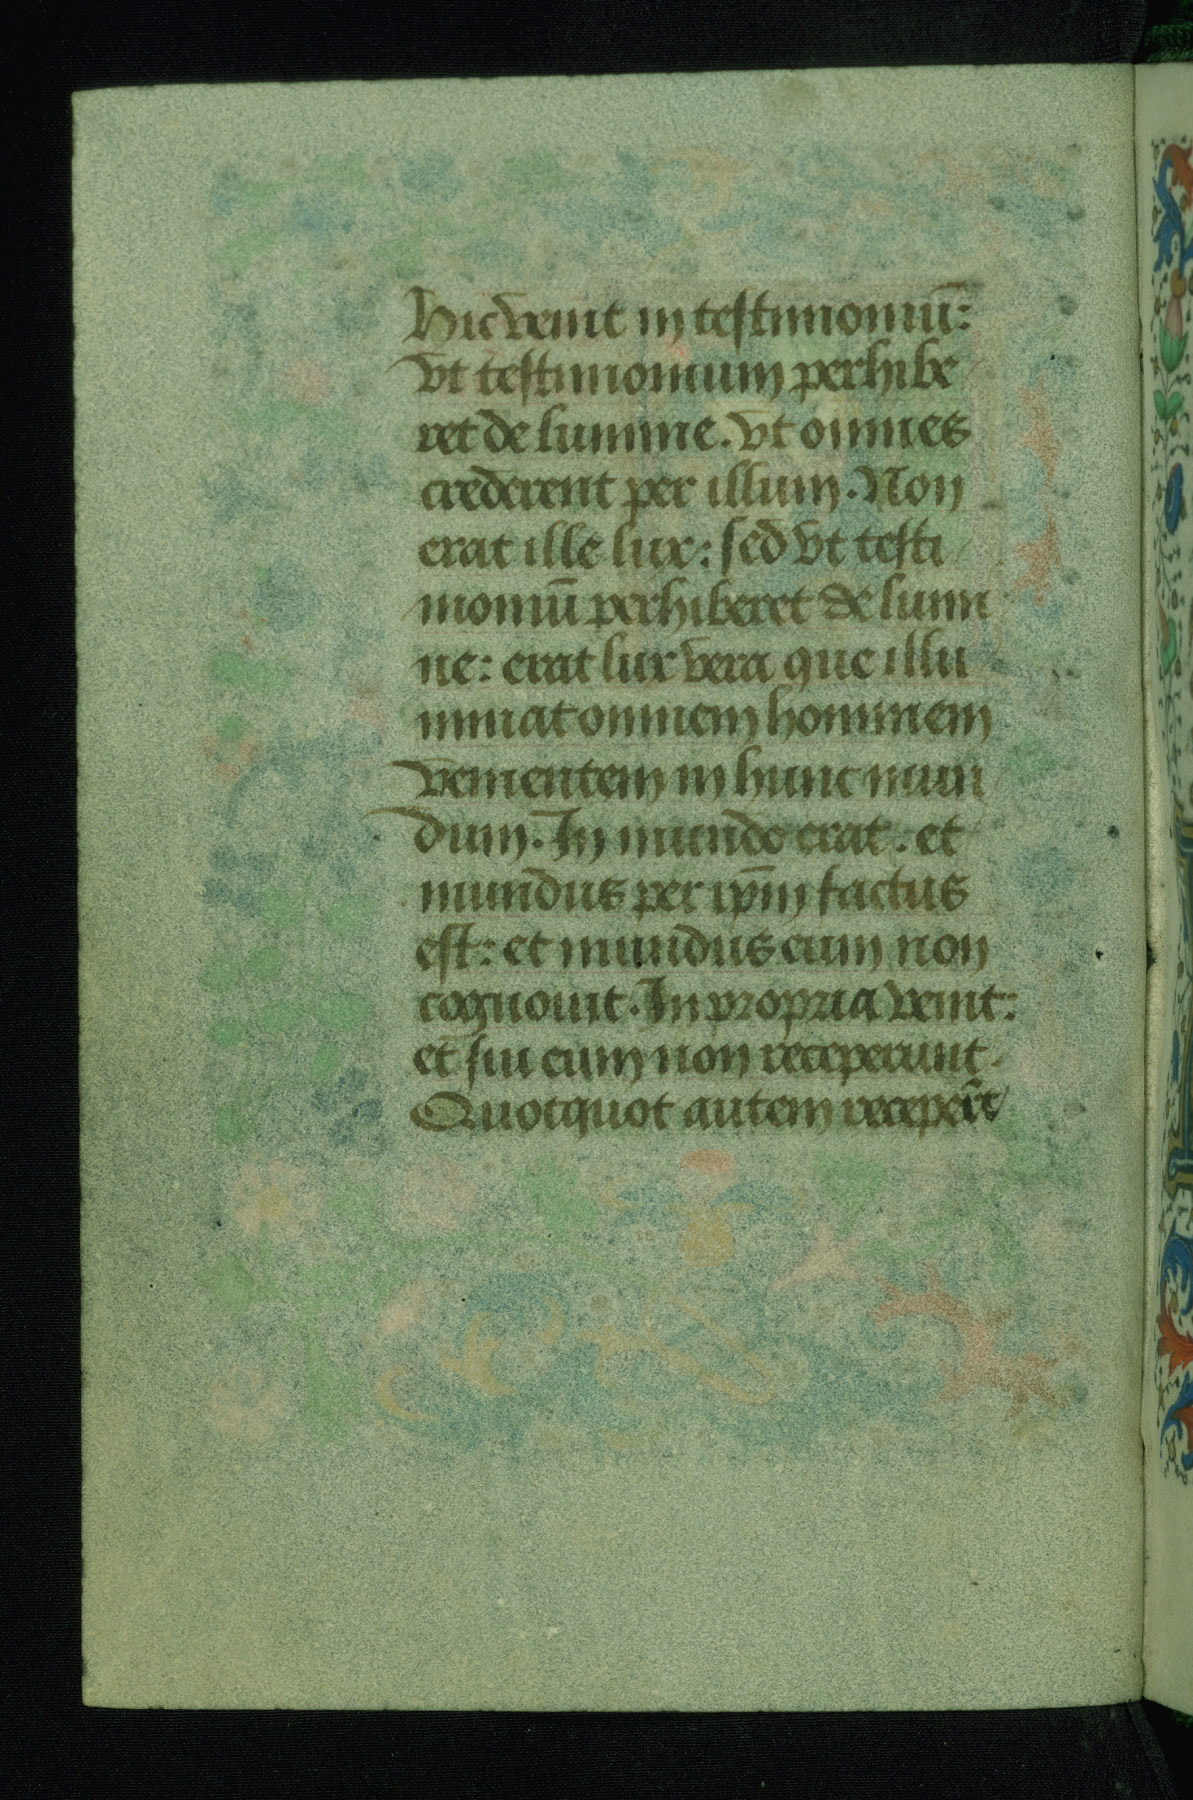 Hic venit in testimoniū:
vt testimonium perhibe
ret de lumine. vt omnes
crederent per illum. Non
erat ille lux: sed vt testi
moniū perhiberet de lumi
ne: erat lux vera que illu
minat omnem hominem
venientem in hunc mun
dum. In mundo erat. et
mundus per ip̄m factus
est: et mundus eum non
cognouit. In propria venit:
et sui eum non receperunt.
Quotquot autem receper̄t